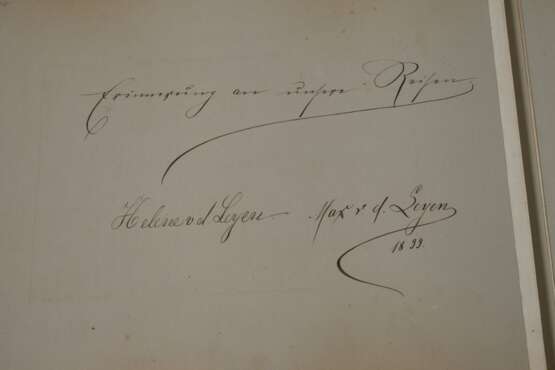 Erinnerung an unsere Reisen
Helene v d Leyen Max v. d. Leyen
1899.